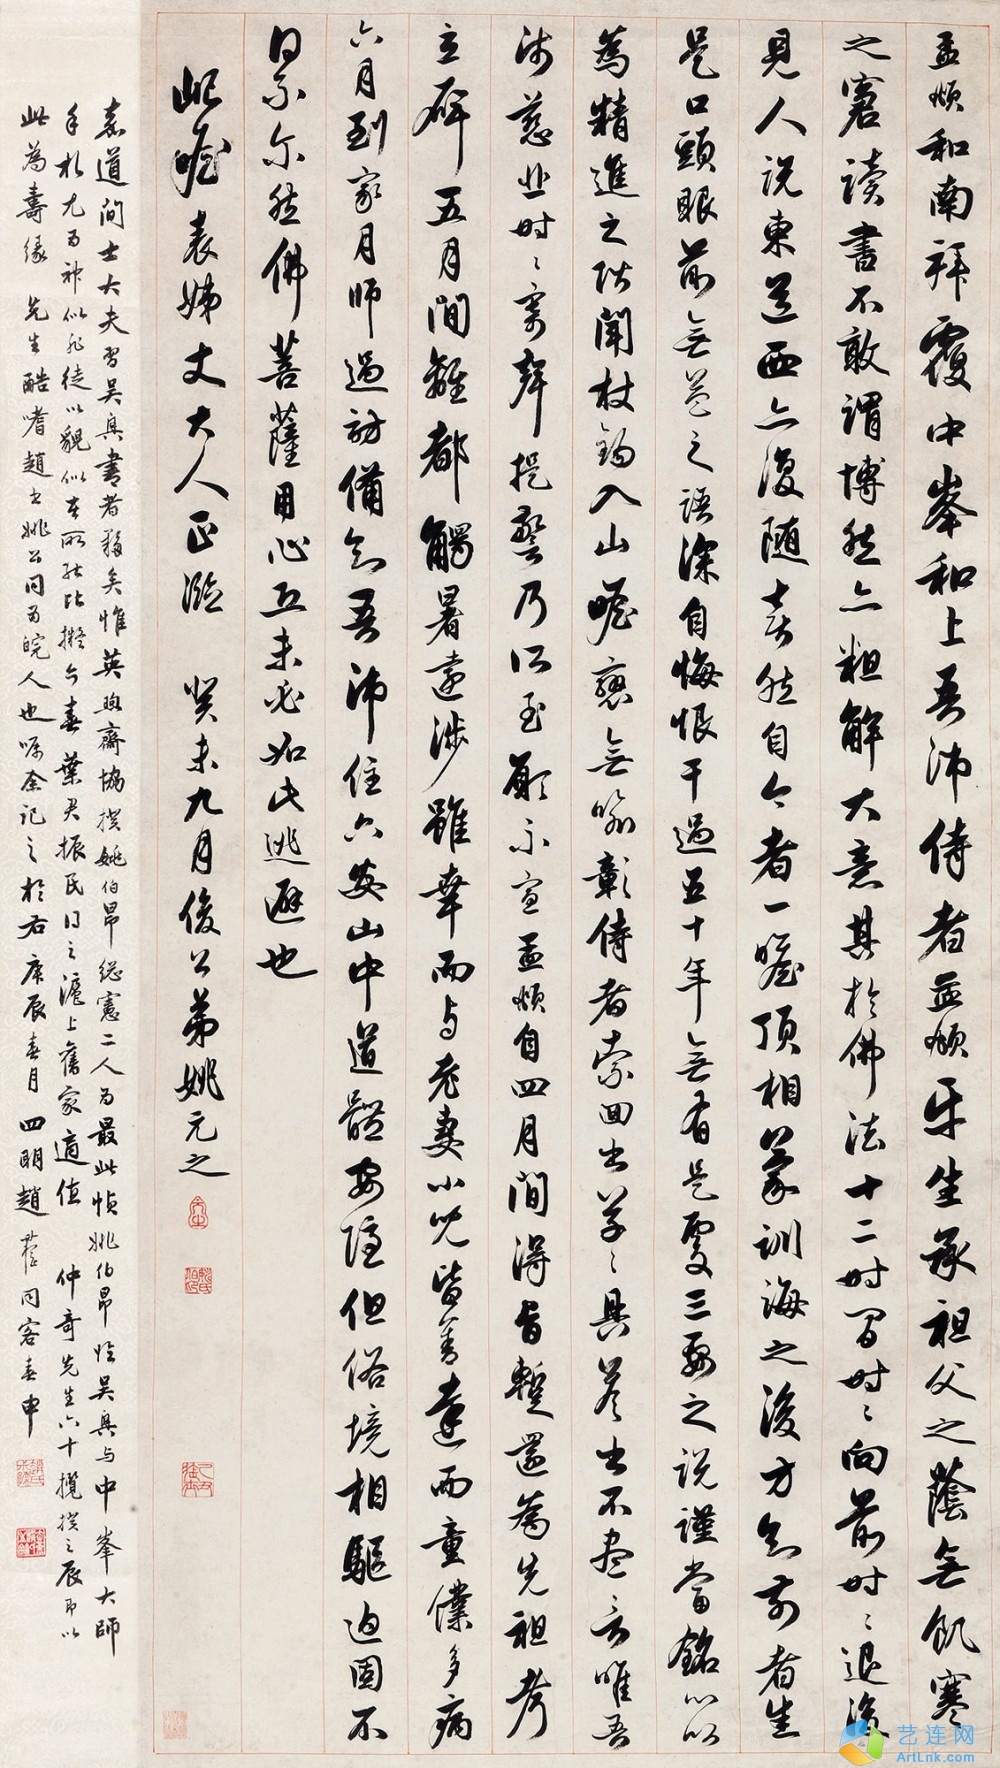 孟頫和南拜覆中峯和上吾師侍者孟頫平生承祖父之蔭無飢寒
之窘讀書不敢謂博然亦粗解大意其於佛法十二時間時時向前時時退後
見人說東道西亦復隨喜然自今者一瞻頂相蒙訓誨之後方知前者生
是口頭眼前無益之語深自悔恨干過五十年無有是處三要之說謹當銘心以
爲精進之階聞杖錫入山瞻戀無喻彰侍者索回書草草具答書不盡言唯吾
師慈悲時時寄聲提警乃所至願不宣孟頫自四月間得旨暫還爲先祖考
立碑五月間離都觸暑遠涉雖幸而与老妻小兒皆善達而童僕多病
六月到家月師過訪備知吾師住六安山中道體安隱但俗境相驅迫固不
得不尔然佛菩薩用心正未必如此逃避也
屺瞻表姊丈大人正臨 癸未九月俊公弟姚元之
嘉道間士大夫習吳興書者夥矣惟英煦齋協揆姚伯昂總憲二人为最此幀姚伯昂臨吳興与中峯大師
手札尤为神似非徒以貌似者所能比擬今春葉君振民得之滬上舊家適值 仲奇先生六十攬揆之辰即以
此為壽緣 先生酷嗜趙書姚公同为皖人也囑余記之於右庚辰春月四明趙 同客春申
艺连网
ArtLnk.com